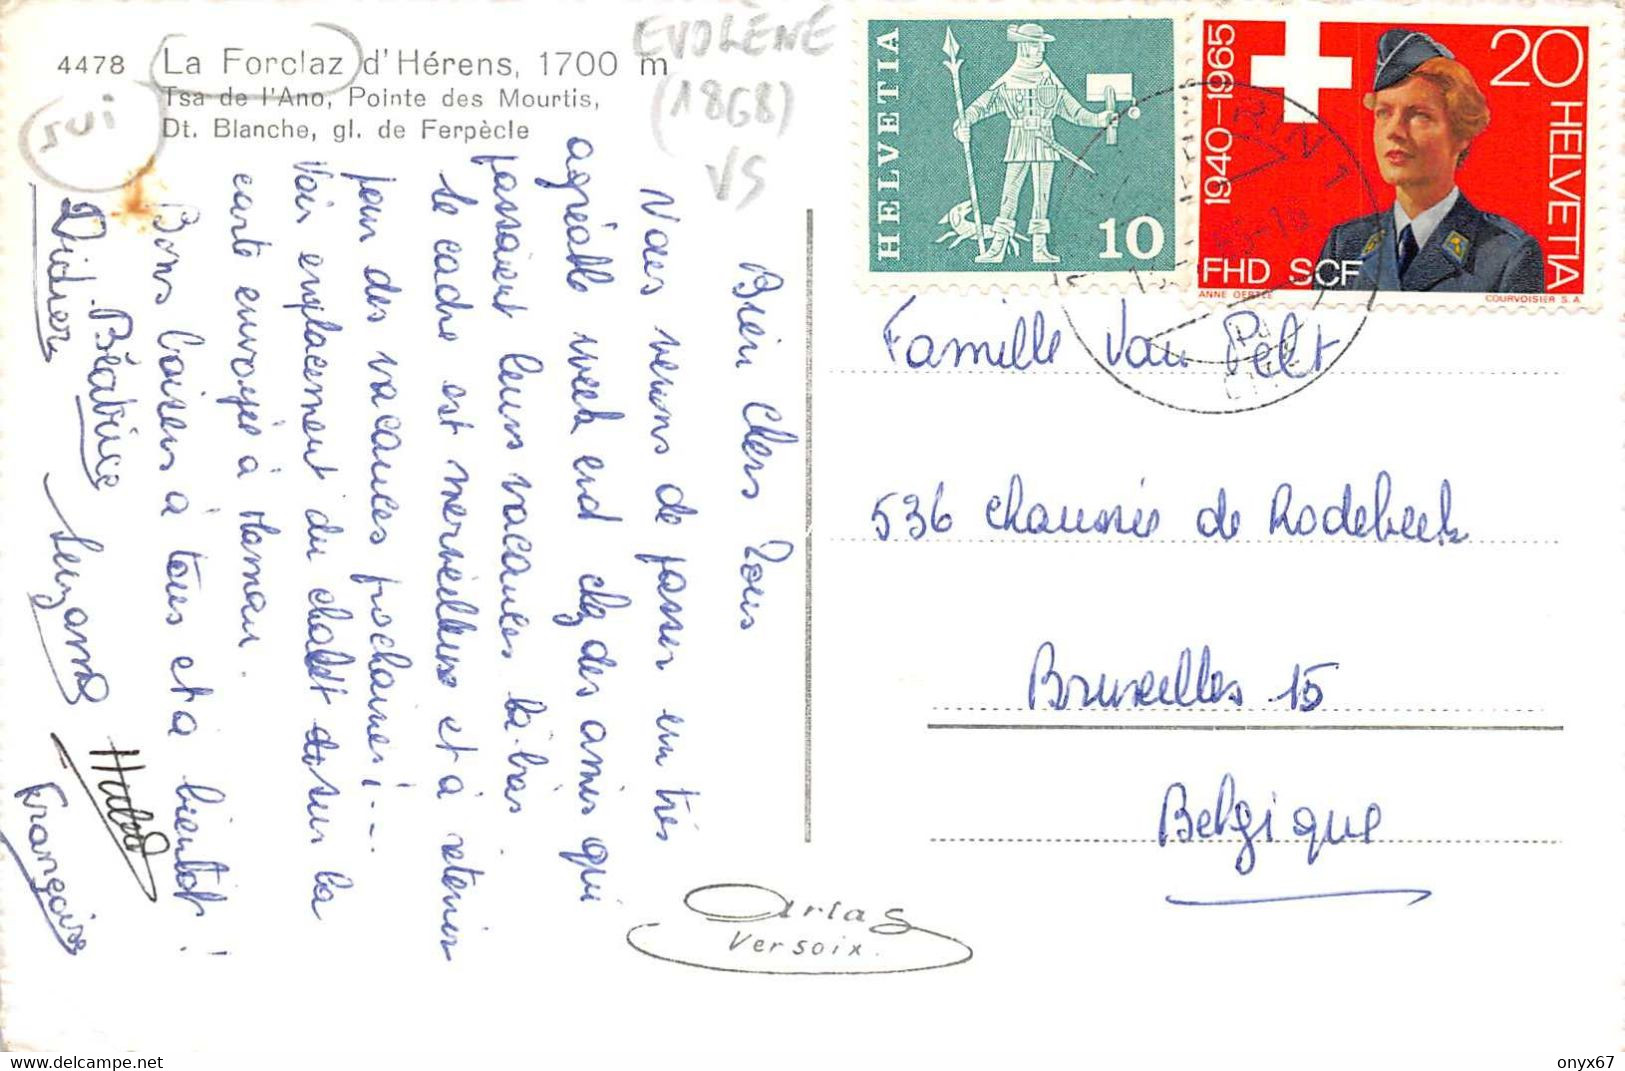 4478 La Forclaz d'Hérens, 1700 m
Tsa de l'Ano, Pointe des Mourtis,
Dt. Blanche, gl. de Ferpècle
EVOLÈNE
(1868)
VS
SUI
HELVETIA
10
1940–1965
20
HELVETIA
FHD SCF
ANNE OERTLE
COURVOISIER S.A.
Bien chers Tous
Nous venons de passer un très
agréable week end chez des amis qui
passaient leurs vacances là-bas
le cadre est merveilleux et à retenir
pour des vacances prochaines!---
Voir emplacement du chalet dessus la
carte envoyée à Maman.
Bons baisers à tous et à bientôt!
Béatrice
Didier
Suzanne
Hubert
Françoise
Famille Van Pelt
536 chaussée de Rodebeek
Bruxelles 15
Belgique
Artas
Versoix.
onyx67